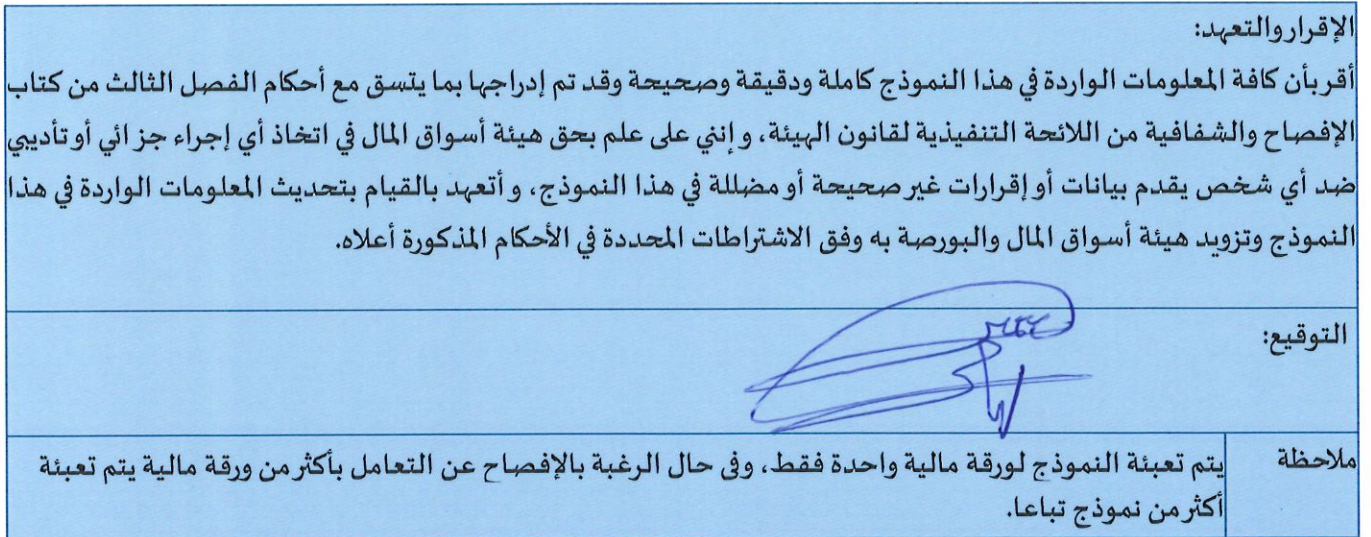 الإقرار والتعهد:
أقر بأن كافة المعلومات الواردة في هذا النموذج كاملة ودقيقة وصحيحة وقد تم إدراجها بما يتسق مع أحكام الفصل الثالث من كتاب
الإفصاح والشفافية من اللائحة التنفيذية لقانون الهيئة، وإنني على علم بحق هيئة أسواق المال في اتخاذ أي إجراء جزائي أو تأديبي
ضد أي شخص يقدم بيانات أو إقرارات غير صحيحة أو مضللة في هذا النموذج، وأتعهد بالقيام بتحديث المعلومات الواردة في هذا
النموذج وتزويد هيئة أسواق المال والبورصة به وفق الاشتراطات المحددة في الأحكام المذكورة أعلاه.
التوقيع:
ملاحظة
يتم تعبئة النموذج لورقة مالية واحدة فقط، وفى حال الرغبة بالإفصاح عن التعامل بأكثر من ورقة مالية يتم تعبئة
أكثر من نموذج تباعا.